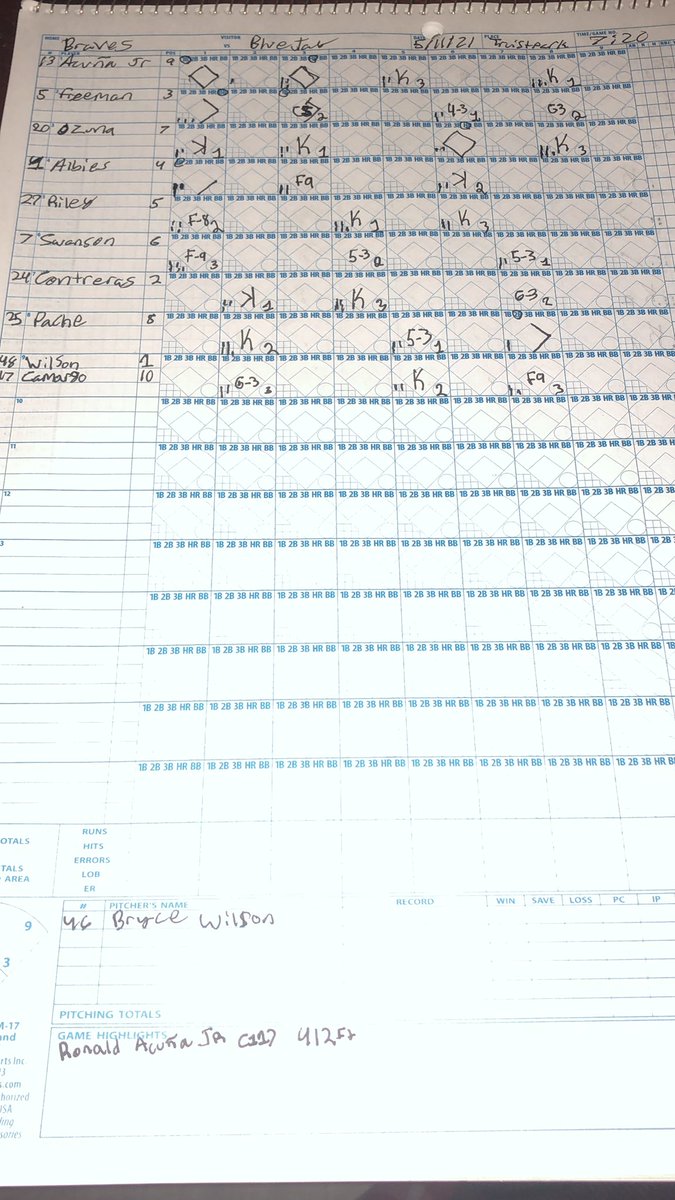 HOME Braves VISITOR VS Blue Jay DATE 5/11/21 PLACE Truistpark TIME/GAME NO. 7:20
# PLAYER POS
13 Acuña Jr 9 K 3 K 1
5 Freeman 3 4-3 1 G3 2
20 Ozuna 7 K 1 K 1 K 3
1 Albies 4 F9 K 2
27 Riley 5 F-8 2 K 1 K 3
7 Swanson 6 F-9 3 5-3 2 5-3 1
24 Contreras 2 K 1 K 3 6-3 2
25 Pache 8 K 2 5-3 1
48 Wilson 1
17 Camargo 10 6-3 3 K 2 F9 3
1B 2B 3B HR BB
10
11
12
3
OTALS RUNS
HITS
TALS ERRORS
AREA LOB
ER
# PITCHER'S NAME RECORD WIN SAVE LOSS PC IP
46 Bryce Wilson
9
3
PITCHING TOTALS
M-17
and
GAME HIGHLIGHTS
Ronald Acuña JR (11) 412 Ft
rts Inc
s.com
horized
USA
ding
sories